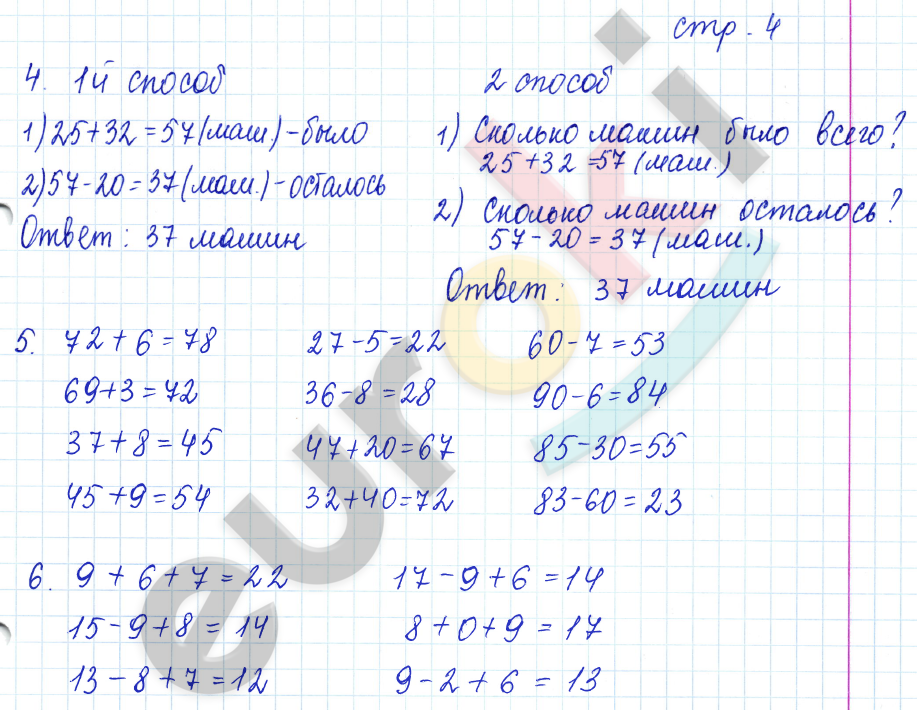 стр. 4
4. 1й способ
1) 25+32=57(маш)-было
2) 57-20=37(маш.)-осталось
Ответ: 37 машин
2 способ
1) Сколько машин было всего?
25+32=57(маш.)
2) Сколько машин осталось?
57-20=37(маш.)
Ответ: 37 машин
5. 72+6=78 27-5=22 60-7=53
69+3=72 36-8=28 90-6=84
37+8=45 47+20=67 85-30=55
45+9=54 32+40=72 83-60=23
6. 9+6+7=22 17-9+6=14
15-9+8=14 8+0+9=17
13-8+7=12 9-2+6=13
euroki